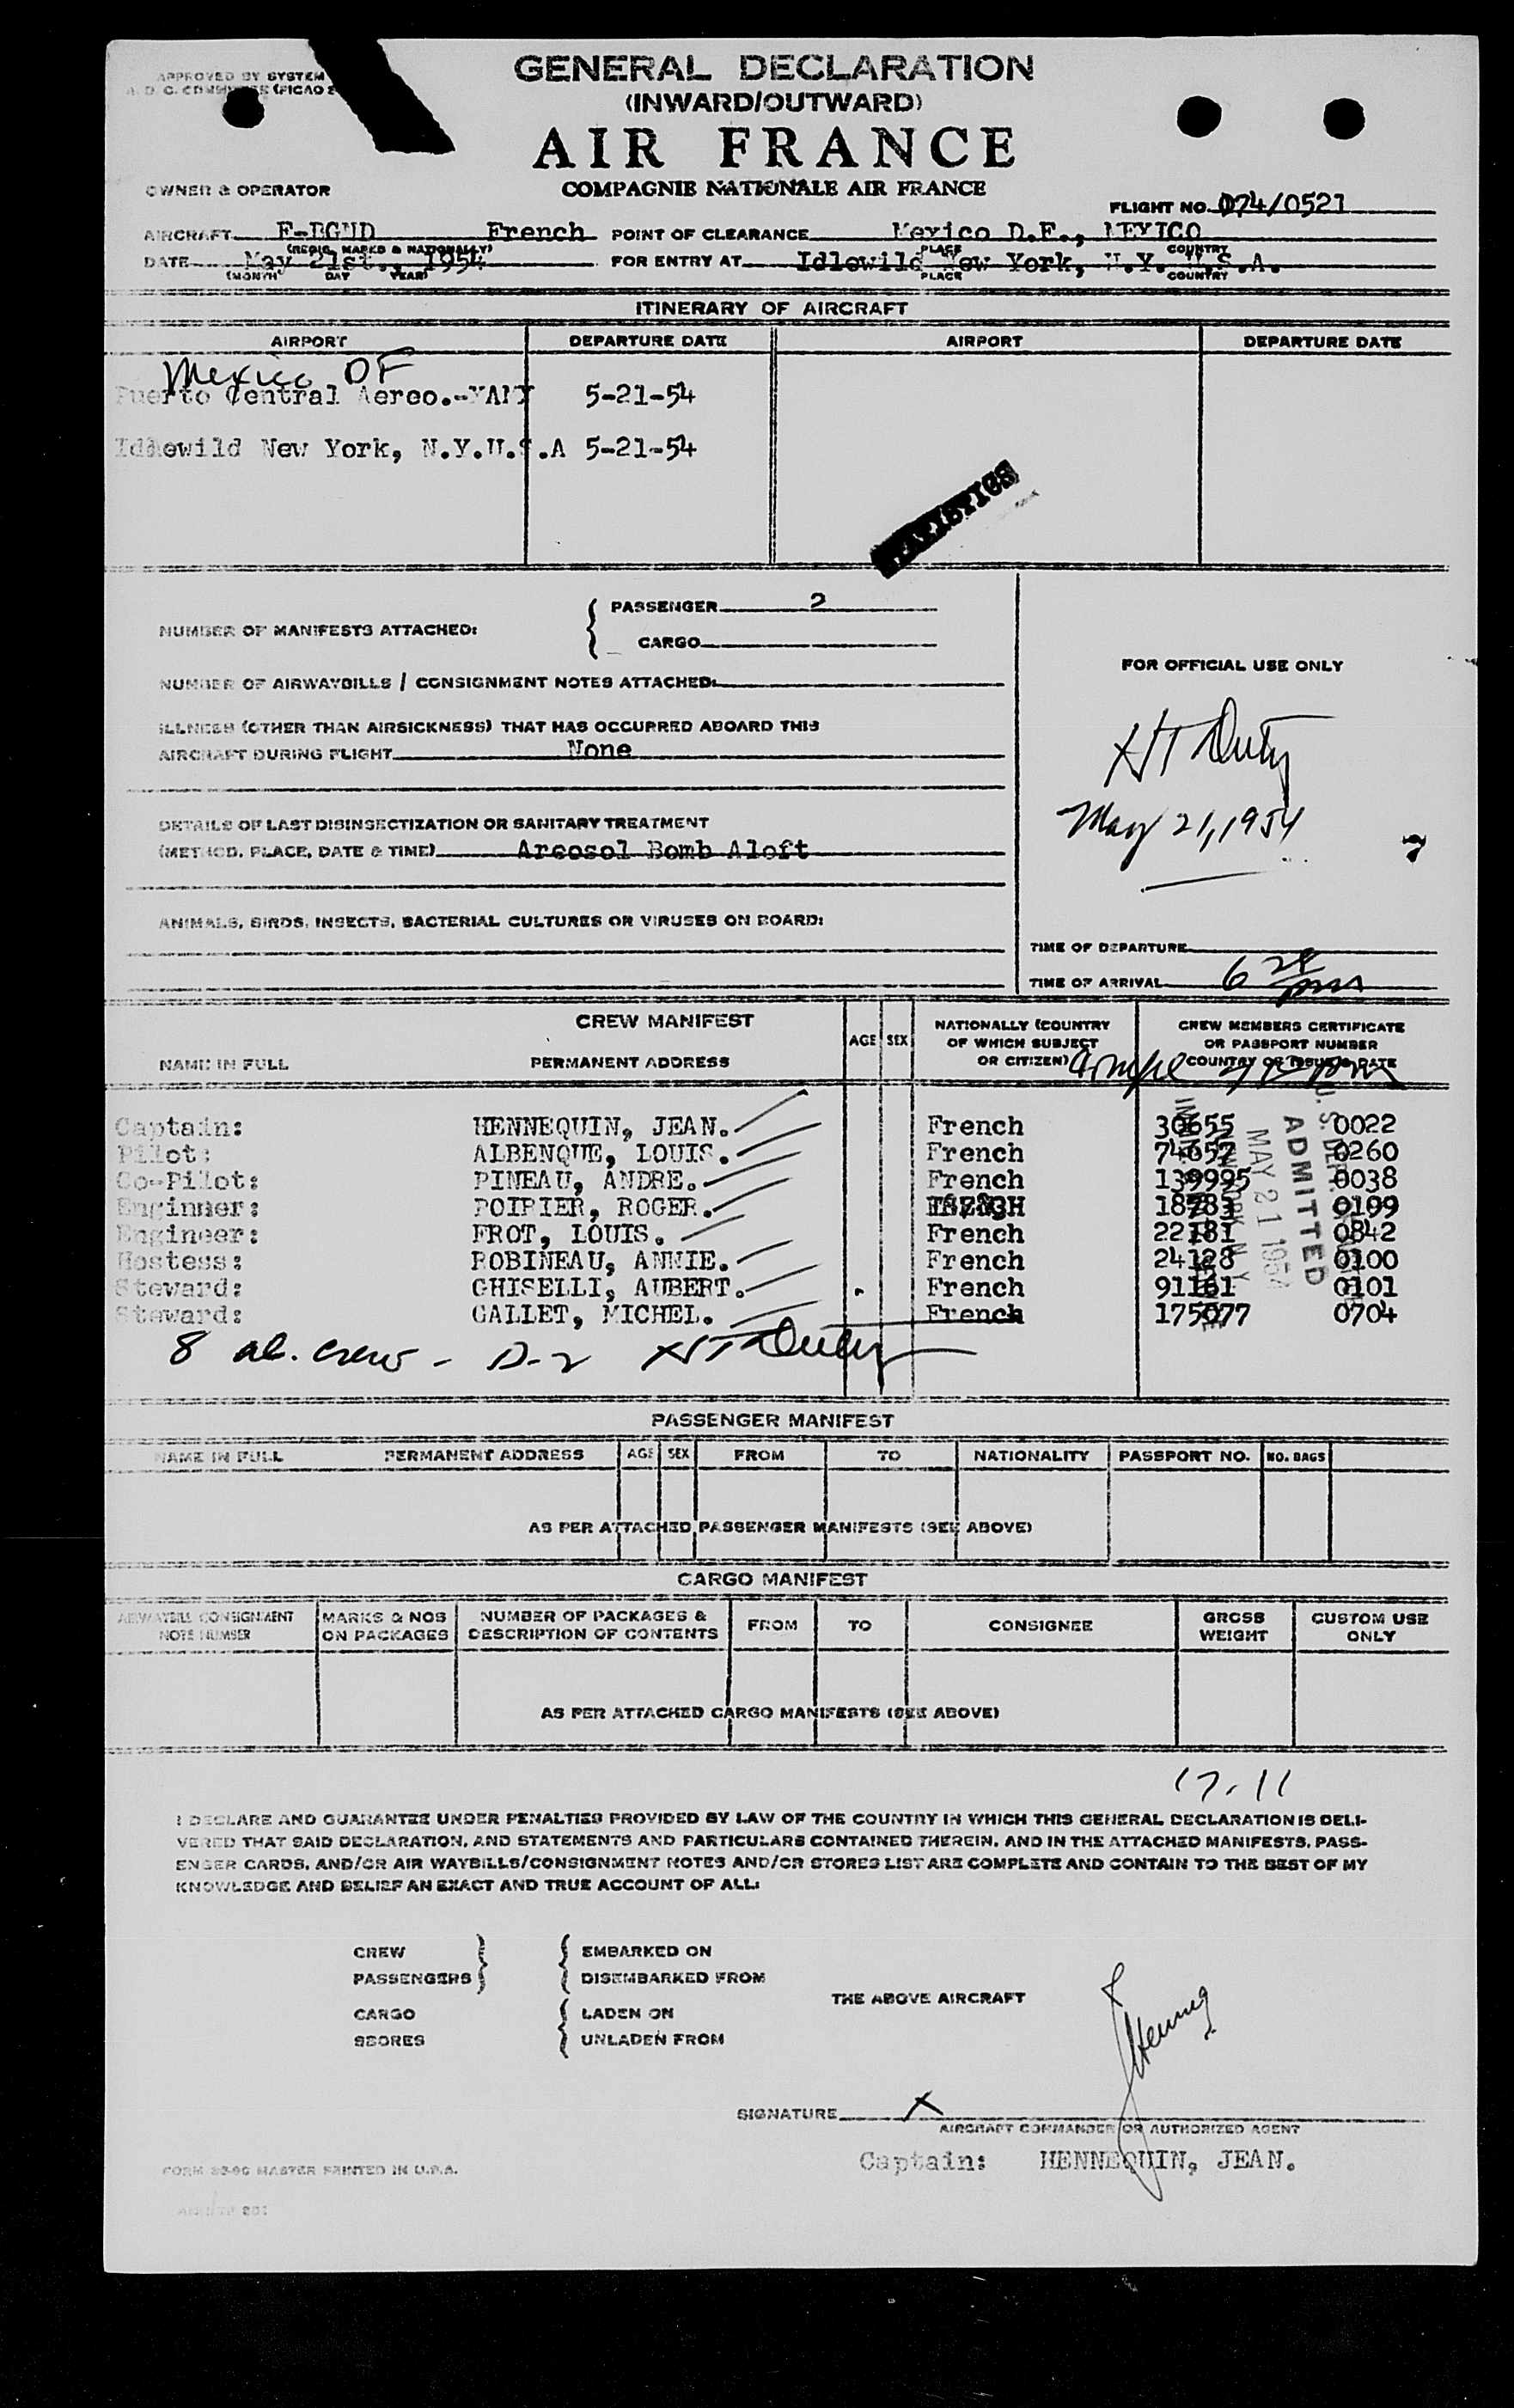 APPROVED BY SYSTEM
GENERAL DECLARATION
(INWARD/OUTWARD)
AIR FRANCE
OWNER & OPERATOR
COMPAGNIE NATIONALE AIR FRANCE
FLIGHT NO. 074/0521
AIRCRAFT F-BGND French POINT OF CLEARANCE Mexico D.F., MEXICO
(REGIS. MARKS & NATIONALLY) PLACE COUNTRY
DATE May 21st., 1954 FOR ENTRY AT Idlewild New York, N.Y. U.S.A.
(MONTH DAY YEAR) PLACE COUNTRY
ITINERARY OF AIRCRAFT
AIRPORT DEPARTURE DATE AIRPORT DEPARTURE DATE
Mexico DF
Puerto Central Aereo. 5-21-54
Idlewild New York, N.Y.U.S.A 5-21-54
STATISTICS
NUMBER OF MANIFESTS ATTACHED: PASSENGER 2
CARGO
FOR OFFICIAL USE ONLY
NUMBER OF AIRWAYBILLS / CONSIGNMENT NOTES ATTACHED:
ILLNESS (OTHER THAN AIRSICKNESS) THAT HAS OCCURRED ABOARD THIS
AIRCRAFT DURING FLIGHT None
May 21, 1954
DETAILS OF LAST DISINSECTIZATION OR SANITARY TREATMENT
(METHOD, PLACE, DATE & TIME) Areosol Bomb Aloft
ANIMALS, BIRDS, INSECTS, BACTERIAL CULTURES OR VIRUSES ON BOARD:
TIME OF DEPARTURE
TIME OF ARRIVAL 6 pm
CREW MANIFEST
NAME IN FULL PERMANENT ADDRESS AGE SEX NATIONALLY (COUNTRY OF WHICH SUBJECT OR CITIZEN) CREW MEMBERS CERTIFICATE OR PASSPORT NUMBER COUNTRY OF ISSUE & DATE
Captain: HENNEQUIN, JEAN. French 30655 0022
Pilot: ALBENQUE, LOUIS. French 74657 0260
Co-Pilot: PINEAU, ANDRE. French 139995 0038
Enginner: POIRIER, ROGER. 18783 0199
Engineer: FROT, LOUIS. French 22181 0842
Hostess: ROBINEAU, ANNIE. French 24128 0100
Steward: GHISELLI, AUBERT. French 91161 0101
Steward: GALLET, MICHEL. French 175077 0704
ADMITTED
MAY 21 1954
8 al. crew - D-2
PASSENGER MANIFEST
NAME IN FULL PERMANENT ADDRESS AGE SEX FROM TO NATIONALITY PASSPORT NO. NO. BAGS
AS PER ATTACHED PASSENGER MANIFESTS (SEE ABOVE)
CARGO MANIFEST
AIRWAYBILL CONSIGNMENT NOTE NUMBER MARKS & NOS ON PACKAGES NUMBER OF PACKAGES & DESCRIPTION OF CONTENTS FROM TO CONSIGNEE GROSS WEIGHT CUSTOM USE ONLY
AS PER ATTACHED CARGO MANIFESTS (SEE ABOVE)
17.11
I DECLARE AND GUARANTEE UNDER PENALTIES PROVIDED BY LAW OF THE COUNTRY IN WHICH THIS GENERAL DECLARATION IS DELI-
VERED THAT SAID DECLARATION, AND STATEMENTS AND PARTICULARS CONTAINED THEREIN, AND IN THE ATTACHED MANIFESTS, PASS-
ENGER CARDS, AND/OR AIR WAYBILLS/CONSIGNMENT NOTES AND/OR STORES LIST ARE COMPLETE AND CONTAIN TO THE BEST OF MY
KNOWLEDGE AND BELIEF AN EXACT AND TRUE ACCOUNT OF ALL:
CREW EMBARKED ON
PASSENGERS DISEMBARKED FROM
THE ABOVE AIRCRAFT
CARGO LADEN ON
SBORES UNLADEN FROM
SIGNATURE X
AIRCRAFT COMMANDER OR AUTHORIZED AGENT
Captain: HENNEQUIN, JEAN.
MASTER PRINTED IN U.S.A.